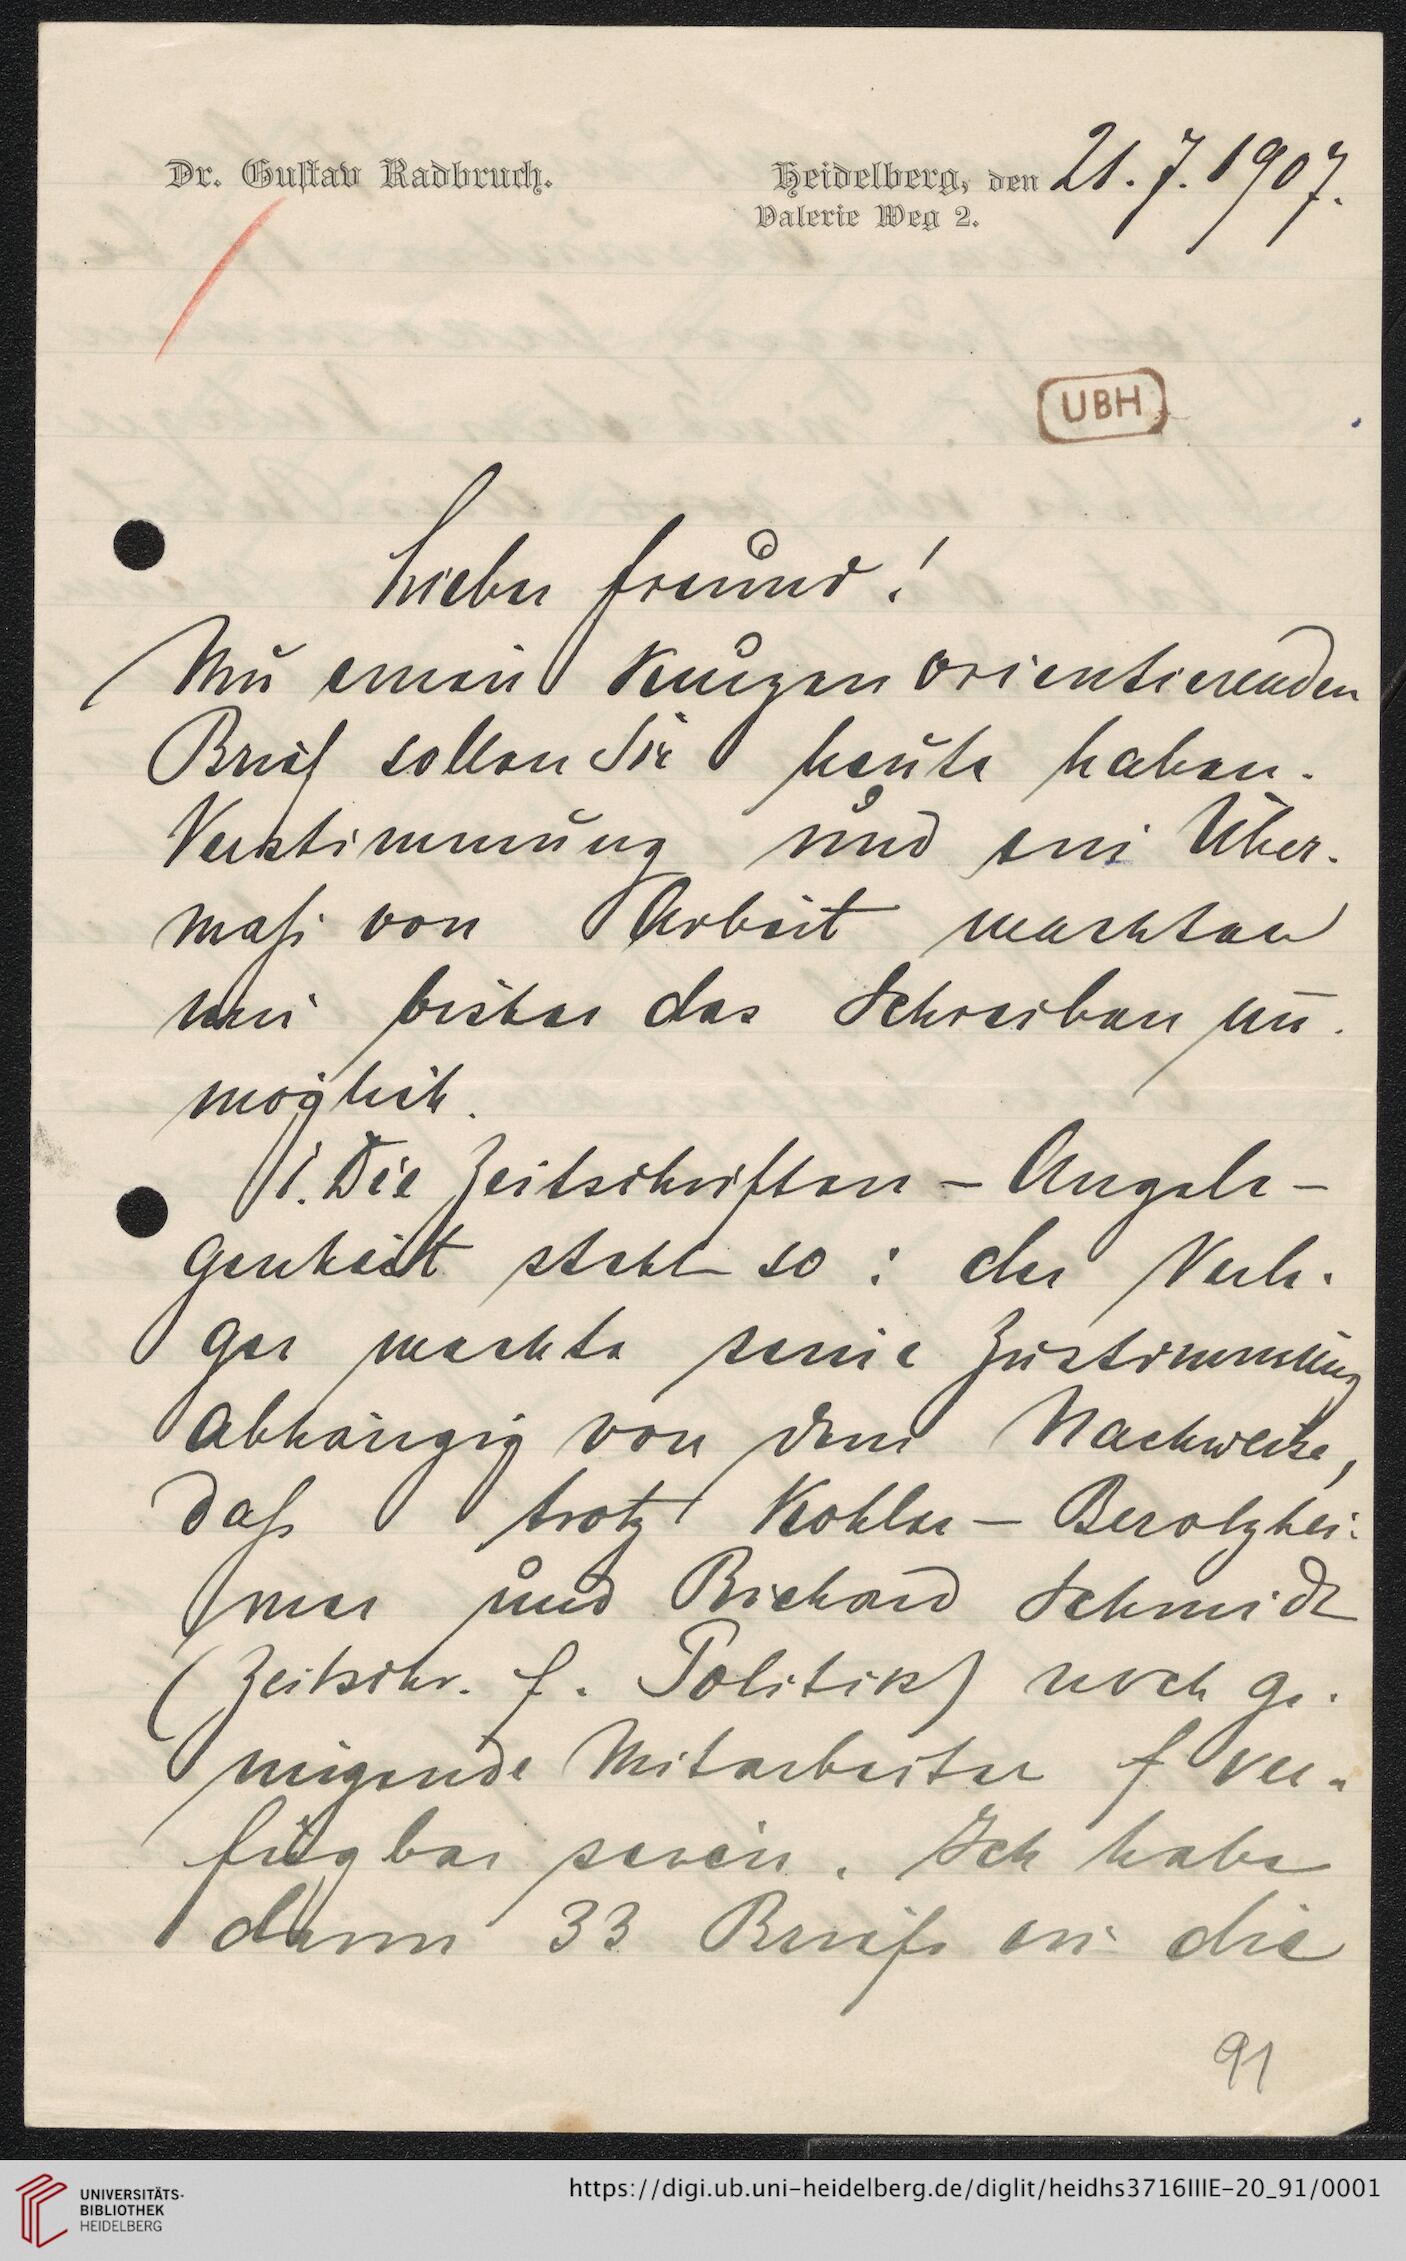 Dr. Gustav Radbruch.
Heidelberg, den 21.7.1907.
Valerie Weg 2.
UBH
Lieber Freund!
Nur einen kurzen orientierenden
Brief sollen Sie heute haben.
Verstimmung und ein Über-
maß von Arbeit machten
mir bisher das Schreiben un-
möglich.
1. Die Zeitschriften-Angele-
genheit steht so: der Verle-
ger machte seine Zustimmung
abhängig von dem Nachweise,
daß trotz Kohler-Berolzhei-
mer und Richard Schmidt
(Zeitschr. f. Politik) noch ge-
nügende Mitarbeiter ver-
fügbar seien. Ich habe
dann 33 Briefe an die
91
UNIVERSITÄTS-
BIBLIOTHEK
HEIDELBERG
https://digi.ub.uni-heidelberg.de/diglit/heidhs3716IIIE-20_91/0001